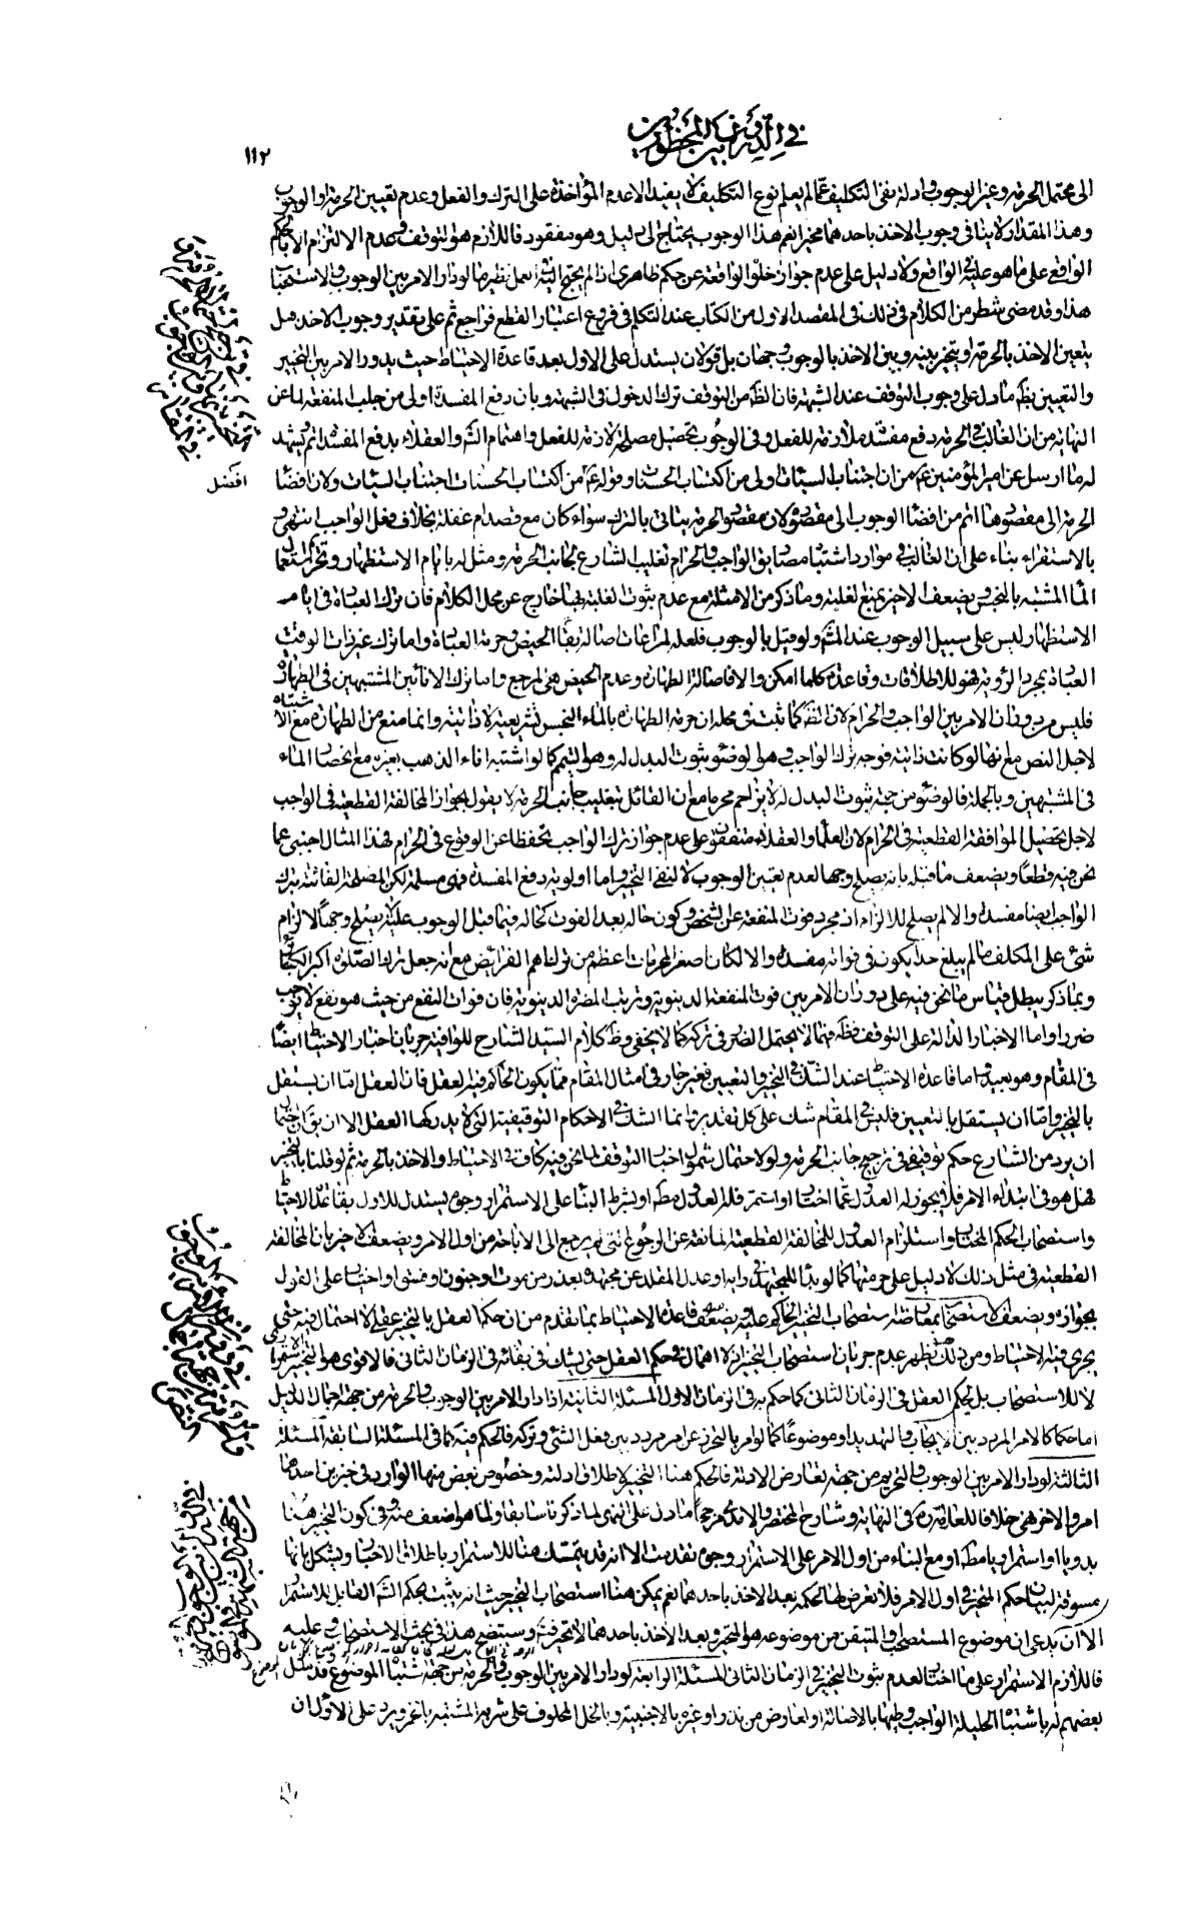 في الدوران بين المحذورين
١١٢
الى محتمل الحرمة وغير الوجوب وادلة نفى التكليف عما لم يعلم نوع التكليف لا يفيد الا عدم المؤاخذة على الترك والفعل وعدم تعيين الحرمة او الوجوب
وهذا المقدار لا ينافى وجوب الاخذ باحدهما مخيرا نعم هذا الوجوب يحتاج الى دليل وهو مفقود فاللازم هو التوقف وعدم الالتزام الا بالحكم
الواقعى على ما هو عليه فى الواقع ولا دليل على عدم جواز خلو الواقعة عن حكم ظاهرى اذا لم يحتج اليه فى العمل نظير ما لو دار الامر بين الوجوب والاستحباب
هذا وقد مضى شطر من الكلام فى ذلك فى المقصد الاول من الكتاب عند التكلم فى فروع اعتبار القطع فراجع ثم على تقدير وجوب الاخذ هل
يتعين الاخذ بالحرمة او يتخير بينه وبين الاخذ بالوجوب وجهان بل قولان يستدل على الاول بعد قاعدة الاحتياط حيث يدور الامر بين التخيير
والتعيين بظ ما دل على وجوب التوقف عند الشبهة فان الظ من التوقف ترك الدخول فى الشبهة وبان دفع المفسدة اولى من جلب المنفعة لما عن
النهاية من ان الغالب فى الحرمة دفع مفسدة ملازمة للفعل وفى الوجوب تحصيل مصلحة لازمة للفعل واهتمام الش والعقلاء بدفع المفسدة اتم ويشهد
له ما ارسل عن امير المؤمنين ع من ان اجتناب السيئات اولى من اكتساب الحسنات وقوله ع من اكتساب الحسنات اجتناب السيئات ولان افضاء
افضل
الحرمة الى مقصودها اتم من افضاء الوجوب الى مقصوده لان مقصود الحرمة يتاتى بالترك سواء كان مع قصد ام غفلة بخلاف فعل الواجب انتهى و
بالاستقراء بناء على ان الغالب فى موارد اشتباه مصاديق الواجب والحرام تغليب الشارع لجانب الحرمة ومثل له بايام الاستظهار وتحريم استعمال
الماء المشتبه بالنجس ويضعف الاخير بمنع الغلبة وما ذكر من الامثلة مع عدم ثبوت الغلبة بها خارج عن محل الكلام فان ترك العبادة فى ايام
الاستظهار ليس على سبيل الوجوب عند المش ولو قيل بالوجوب فلعله لمراعات اصالة بقاء الحيض وحرمة العبادة واما ترك غير ذات الوقت
العبادة بمجرد الرؤية فهو للاطلاقات وقاعدة كلما امكن والا فاصالة الطهارة وعدم الحيض هى المرجع واما ترك الانائين المشتبهين فى الطهارة
فليس من دوران الامر بين الواجب والحرام لان الظ كما ثبت فى محله ان حرمة الطهارة بالماء النجس تشريعية لا ذاتية وانما منع من الطهارة مع الاشتباه
لاجل النص مع انها لو كانت ذاتية فوجه ترك الواجب وهو الوضوء ثبوت البدل له وهو التيمم كما لو اشتبه اناء الذهب بغيره مع انحصار الماء
فى المشتبهين وبالجملة فالوضوء من جهة ثبوت البدل له لا يزاحم محرما مع ان القائل بتغليب جانب الحرمة لا يقول بجواز المخالفة القطعية فى الواجب
لاجل تحصيل الموافقة القطعية فى الحرام لان العلماء والعقلاء متفقون على عدم جواز ترك الواجب تحفظا عن الوقوع فى الحرام فهذا المثال اجنبى عما
نحن فيه قطعا ويضعف ما قبله بانه يصلح وجها لعدم تعيين الوجوب لا لنفى التخيير واما اولوية دفع المفسدة فهى مسلمة لكن المصلحة الفائتة بترك
الواجب ايضا مفسدة والا لم يصلح للالزام اذ مجرد فوت المنفعة عن الشخص وكون حاله بعد الفوت كحاله فيما قبل الوجوب عليه لا يصلح وجها لالزام
شئ على المكلف ما لم يبلغ حدا يكون فى فواته مفسدة والا لكان اصغر المحرمات اعظم من ترك اهم الفرائض مع انه جعل ترك الصلوة اكبر الكبائر
وبما ذكر يبطل قياس ما نحن فيه على دوران الامر بين فوت المنفعة الدنيوية وترتب المضرة الدنيوية فان فوات النفع من حيث هو نفع لا يوجب
ضررا واما الاخبار الدالة على التوقف فظ فيما لا يحتمل الضرر فى تركه كما لا يخفى وظ كلام السيد الشارح للوافية جريان اخبار الاحتياط ايضا
فى المقام وهو بعيد واما قاعدة الاحتياط عند الشك فى التخيير والتعيين فغير جار فى امثال المقام مما يكون الحاكم فيه العقل فان العقل اما ان يستقل
بالتخيير واما ان يستقل بالتعيين فليس فى المقام شك على كل تقدير وانما الشك فى الاحكام التوقيفية التى لا يدركها العقل الا ان يق ان احتمال
ان يرد من الشارع حكم توقيفى فى ترجيح جانب الحرمة ولو لاحتمال شمول اخبار التوقف لما نحن فيه كاف فى الاحتياط والاخذ بالحرمة ثم لو قلنا بالتخيير
هل هو فى ابتداء الامر فلا يجوز له العدول عما اختار او استمر فله العدول مط او بشرط البناء على الاستمرار وجوه يستدل للاول بقاعدة الاحتياط
واستصحاب الحكم المختار واستلزام العدول للمخالفة القطعية المانعة عن الرجوع الى الاباحة من اول الامر ويضعف الاخير بان المخالفة
القطعية فى مثل ذلك لا دليل على حرمتها كما لو بدا للمجتهد فى رايه او عدل المقلد عن مجتهده لعذر من موت او جنون او فسق او اختيارا على القول
بجوازه ويضعف الاستصحاب بمعارضة استصحاب التخيير الحاكم عليه ويضعف قاعدة الاحتياط بما تقدم من ان حكم العقل بالتخيير عقلى لا احتمال فيه حتى
يجرى فيه الاحتياط ومن ذلك يظهر عدم جريان استصحاب التخيير اذ لا اهمال فى حكم العقل حتى يشك فى بقائه فى الزمان الثانى فالاقوى هو التخيير الاستمرارى
لا للاستصحاب بل لحكم العقل فى الزمان الثانى كما حكم به فى الزمان الاول المسئلة الثانية اذا دار الامر بين الوجوب والحرمة من جهة اجمال الدليل
اما حكما كالامر المردد بين الايجاب والتهديد او موضوعا كما لو امر بالتحرز عن امر مردد بين فعل الشئ وتركه فالحكم فيه كما فى المسئلة السابقة المسئلة
الثالثة لو دار الامر بين الوجوب والتحريم من جهة تعارض الادلة فالحكم هنا التخيير لاطلاق ادلته وخصوص بعض منها الوارد فى خبرين احدهما
امر والاخر نهى خلافا للعلامة ره فى النهاية وشارح المختصر والامدى فرجحوا ما دل على النهى لما ذكرنا سابقا ولما هو اضعف منه وفى كون التخيير هنا
بدويا او استمراريا مط او مع البناء من اول الامر على الاستمرار وجوه تقدمت الا انه قد يتمسك هنا للاستمرار باطلاق الاخبار ويشكل بانها
مسوقة لبيان حكم المتحير فى اول الامر فلا تعرض لها لحكمه بعد الاخذ باحدهما نعم يمكن هنا استصحاب التخيير حيث انه يثبت بحكم الش القابل للاستمرار
الا ان يدعى ان موضوع المستصحب او المتيقن من موضوعه هو المتحير وبعد الاخذ باحدهما لا تحير فت وستضح هذا فى بحث الاستصحاب وعليه
فاللازم الاستمرار على ما اختار لعدم ثبوت التخيير فى الزمان الثانى المسئلة الرابعة لو دار الامر بين الوجوب والحرمة من جهة اشتباه الموضوع وقد مثل
بعضهم له باشتباه الحليلة الواجب وطيها بالاصالة او لعارض من نذر او غيره بالاجنبية وبالخل المحلوف على شربه المشتبه بالخمر ويرد على الاول ان